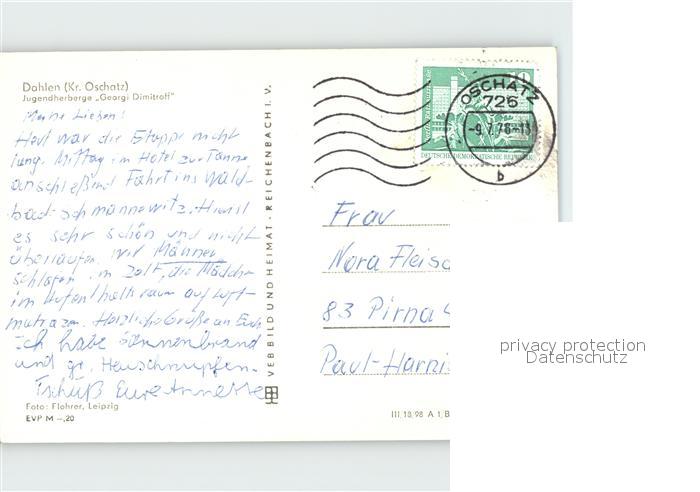 Dahlen (Kr. Oschatz)
Jugendherberge „Georgi Dimitroff"
Meine Lieben!
Heut war die Etappe nicht
lang. Mittag im Hotel zur Tanne
anschließend Fahrt ins Wald-
bad Schmannewitz. Hier ist
es sehr schön und nicht
überlaufen. Wir Männer
schlafen im Zelt, die Mädchen
im Aufenthaltsraum auf Luft-
matrazen. Herzliche Grüße an Euch
Ich habe Sonnenbrand
und gr. Heuschnupfen.
Tschüß Eure Annette
Foto: Flohrer, Leipzig
EVP M –,20
VEB BILD UND HEIMAT · REICHENBACH I. V.
III, 18, 98 A 1, B
10
DEUTSCHE DEMOKRATISCHE REPUBLIK
OSCHATZ
726
-9.7.76-13
b
Frau
Nora Fleisc
83 Pirna
Paul-Harni
privacy protection
Datenschutz